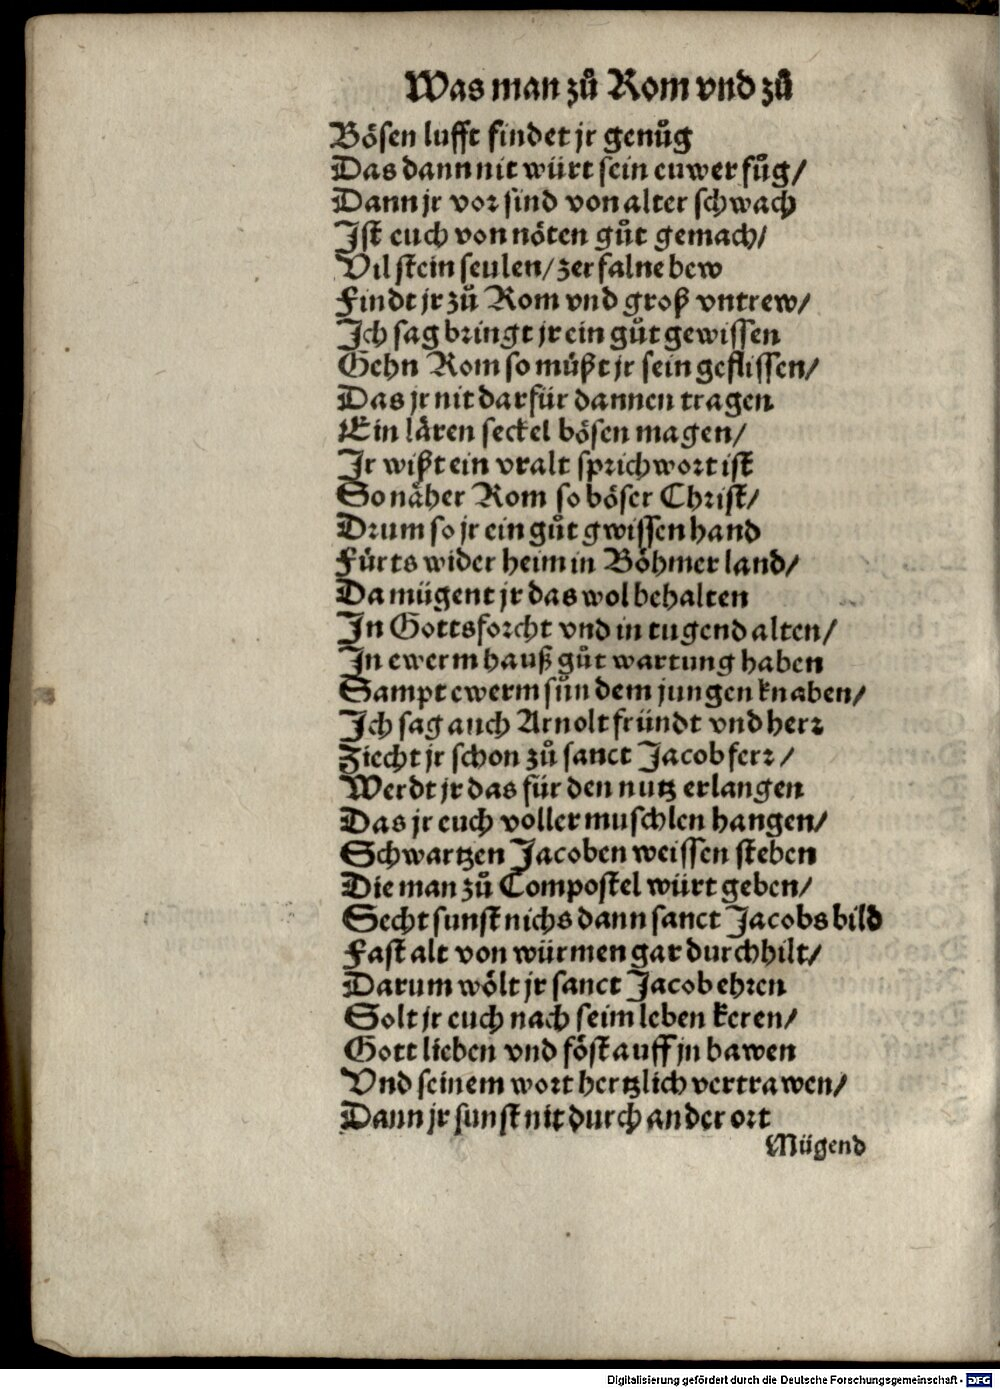 Was man zů Rom vnd zů
Bösen lufft findet jr genůg
Das dann nit würt sein euwer fůg/
Dann jr vor sind von alter schwach
Ist euch von nöten gůt gemach/
Vil stein seulen/ zerfalne bew
Findt jr zů Rom vnd groß vntrew/
Ich sag bringt jr ein gůt gewissen
Gehn Rom so müßt jr sein geflissen/
Das jr nit darfür dannen tragen
Ein lären seckel bösen magen/
Ir wißt ein vralt sprichwort ist
So näher Rom so böser Christ/
Drum so jr ein gůt gwissen hand
Fürts wider heim in Böhmer land/
Da mügent jr das wol behalten
In Gottsforcht vnd in tugend alten/
In ewerm hauß gůt wartung haben
Sampt ewerm sůn dem jungen knaben/
Ich sag auch Arnolt fründt vnd herr
Ziecht jr schon zů sanct Jacob ferr/
Werdt jr das für den nutz erlangen
Das jr euch voller muschlen hangen/
Schwartzen Jacoben weissen steben
Die man zů Compostel würt geben/
Secht sunst nichs dann sanct Jacobs bild
Fast alt von würmen gar durchhilt/
Darum wölt jr sanct Jacob ehren
Solt jr euch nach seim leben keren/
Gott lieben vnd föst auff jn bawen
Vnd seinem wort hertzlich vertrawen/
Dann jr sunst nit durch ander ort
Mügend
Digitalisierung gefördert durch die Deutsche Forschungsgemeinschaft - DFG